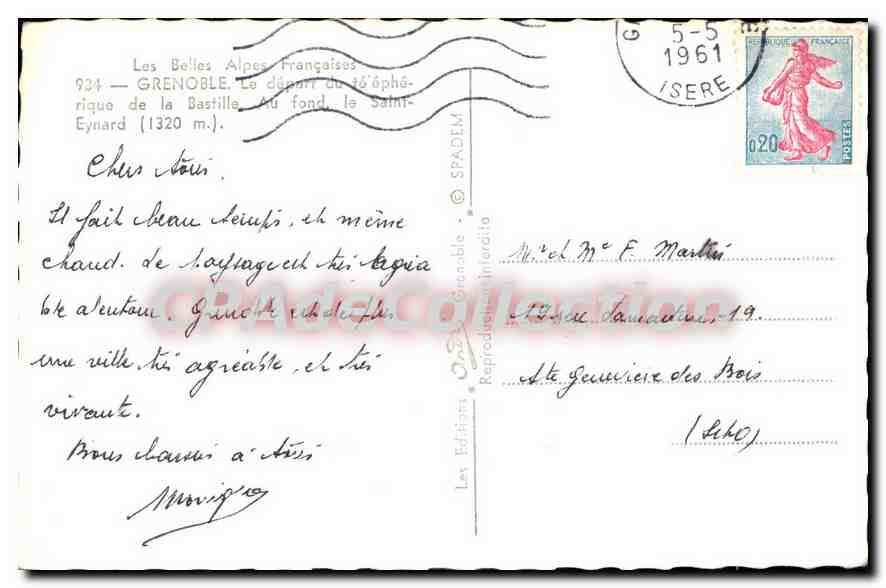 Les Belles Alpes Françaises
934 — GRENOBLE. Le départ du téléphé-
rique de la Bastille. Au fond, le Saint-
Eynard (1320 m.).
Chers
Il fait beau temps, et même
chaud. Le paysage est très agréa
ble alentour. Grenoble est
une ville très agréable, et très
vivante.
Bons baisers à
Les Editions Grenoble - © SPADEM
Reproduction interdite
5-5
1961
ISERE
REPUBLIQUE FRANÇAISE
0,20
POSTES
Mr et Me F.
19 rue - 19.
Ste Geneviève des Bois
(S&O)
CPAdeCollection